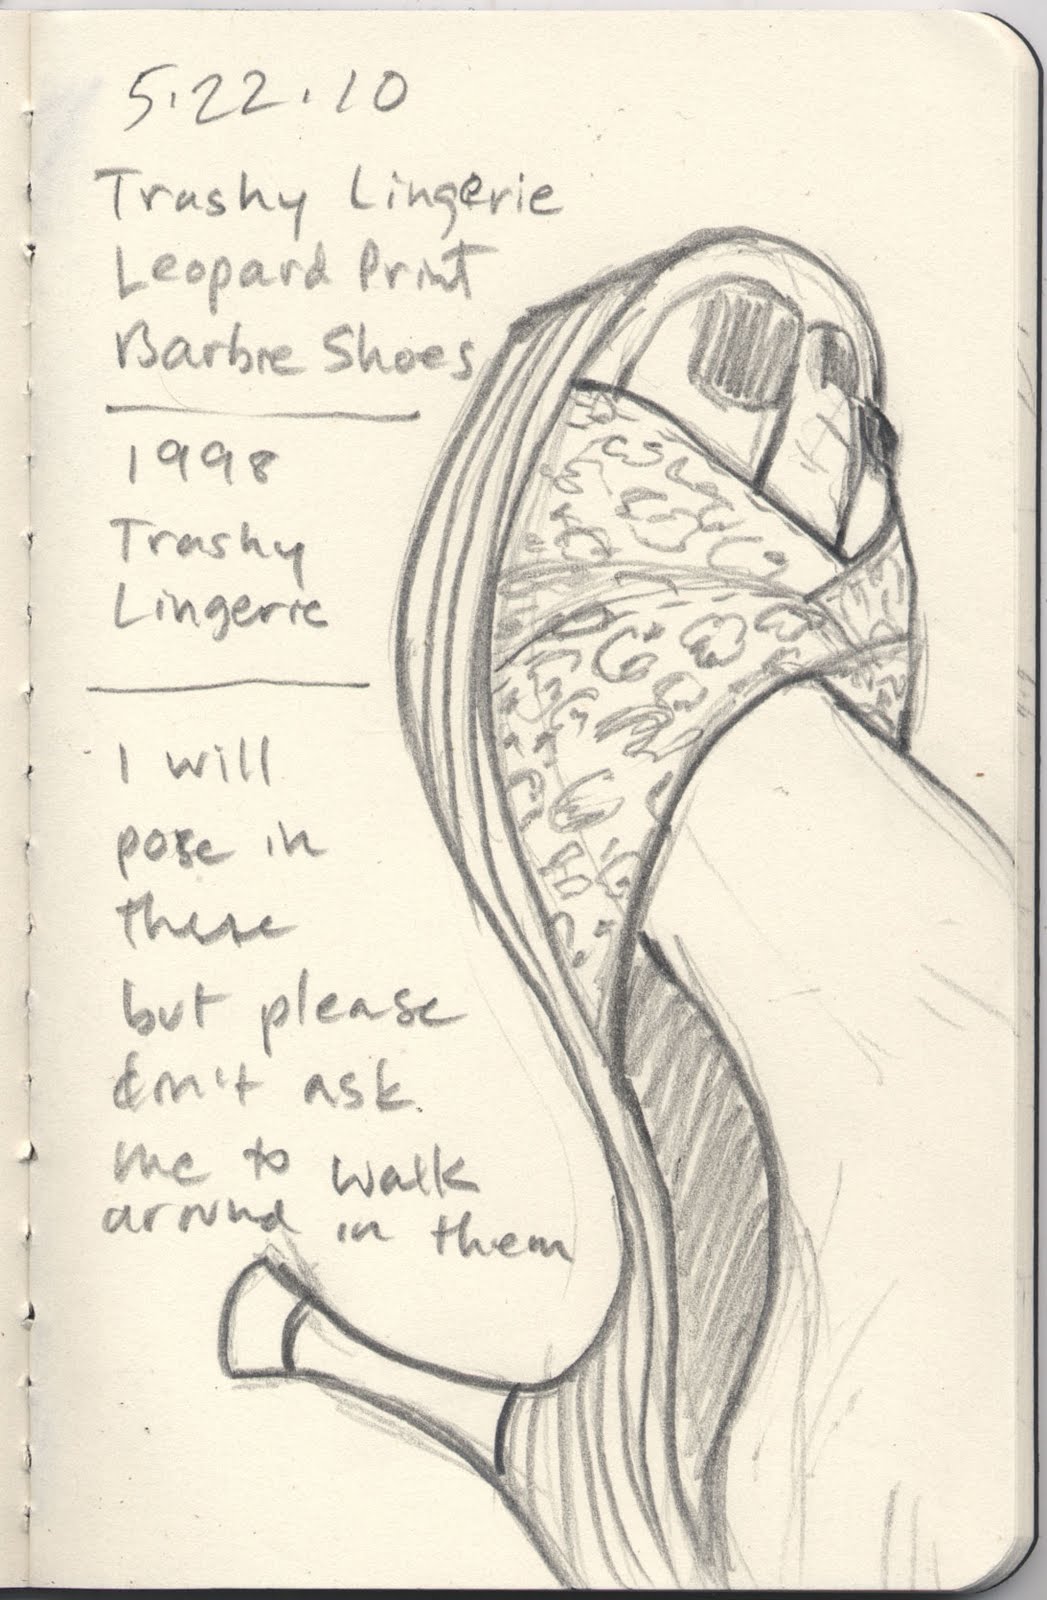 5.22.10
Trashy Lingerie
Leopard Print
Barbie Shoes
1998
Trashy
Lingerie
I will
pose in
these
but please
don't ask
me to walk
around in them